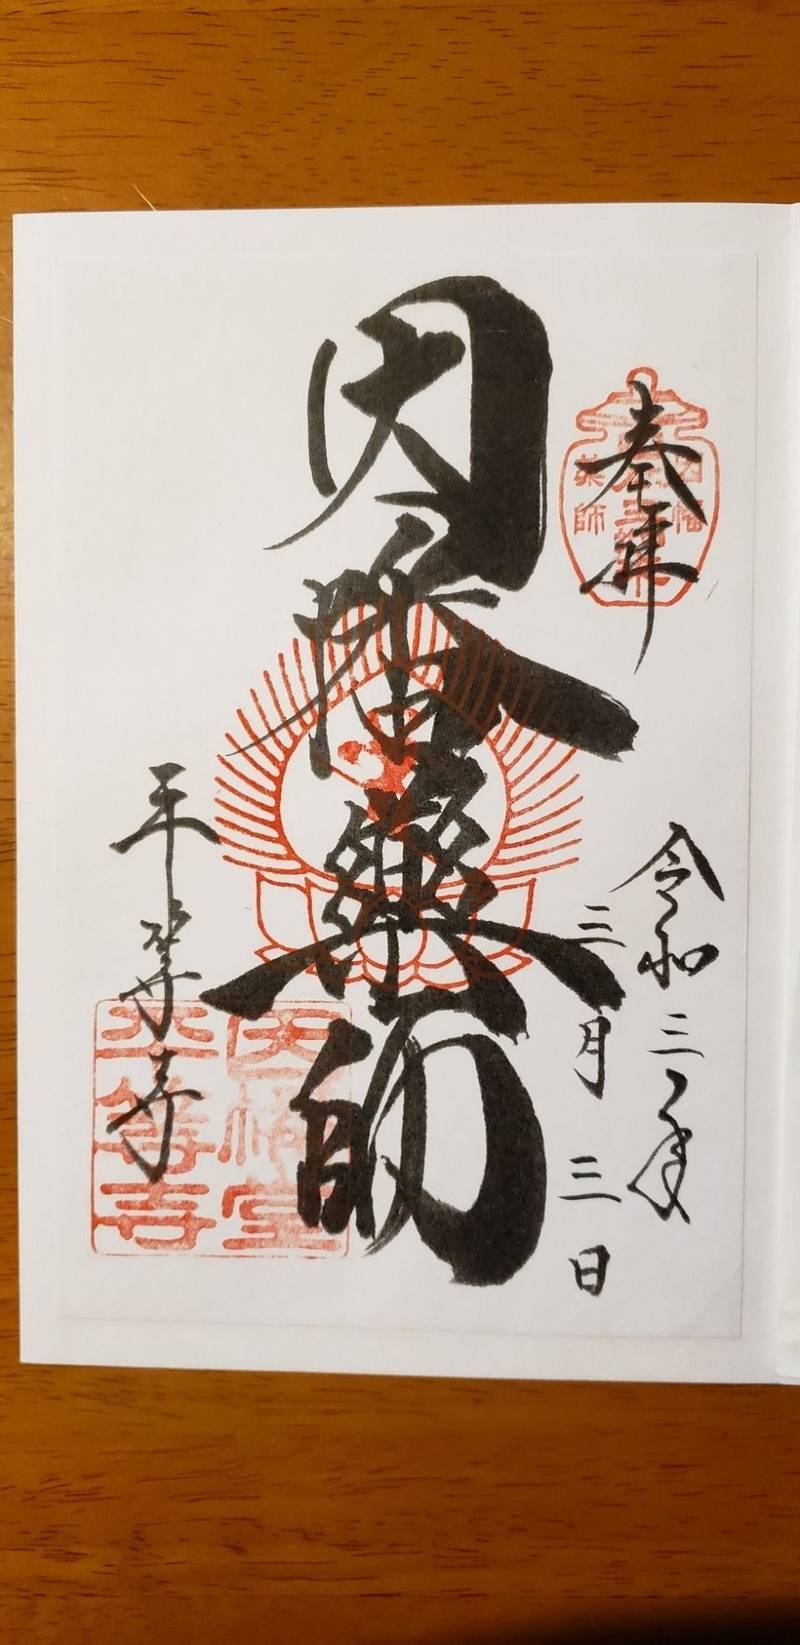 奉拝
因幡
薬師
令和三年
三月三日
因幡藥師
平等寺
因幡堂
平等寺